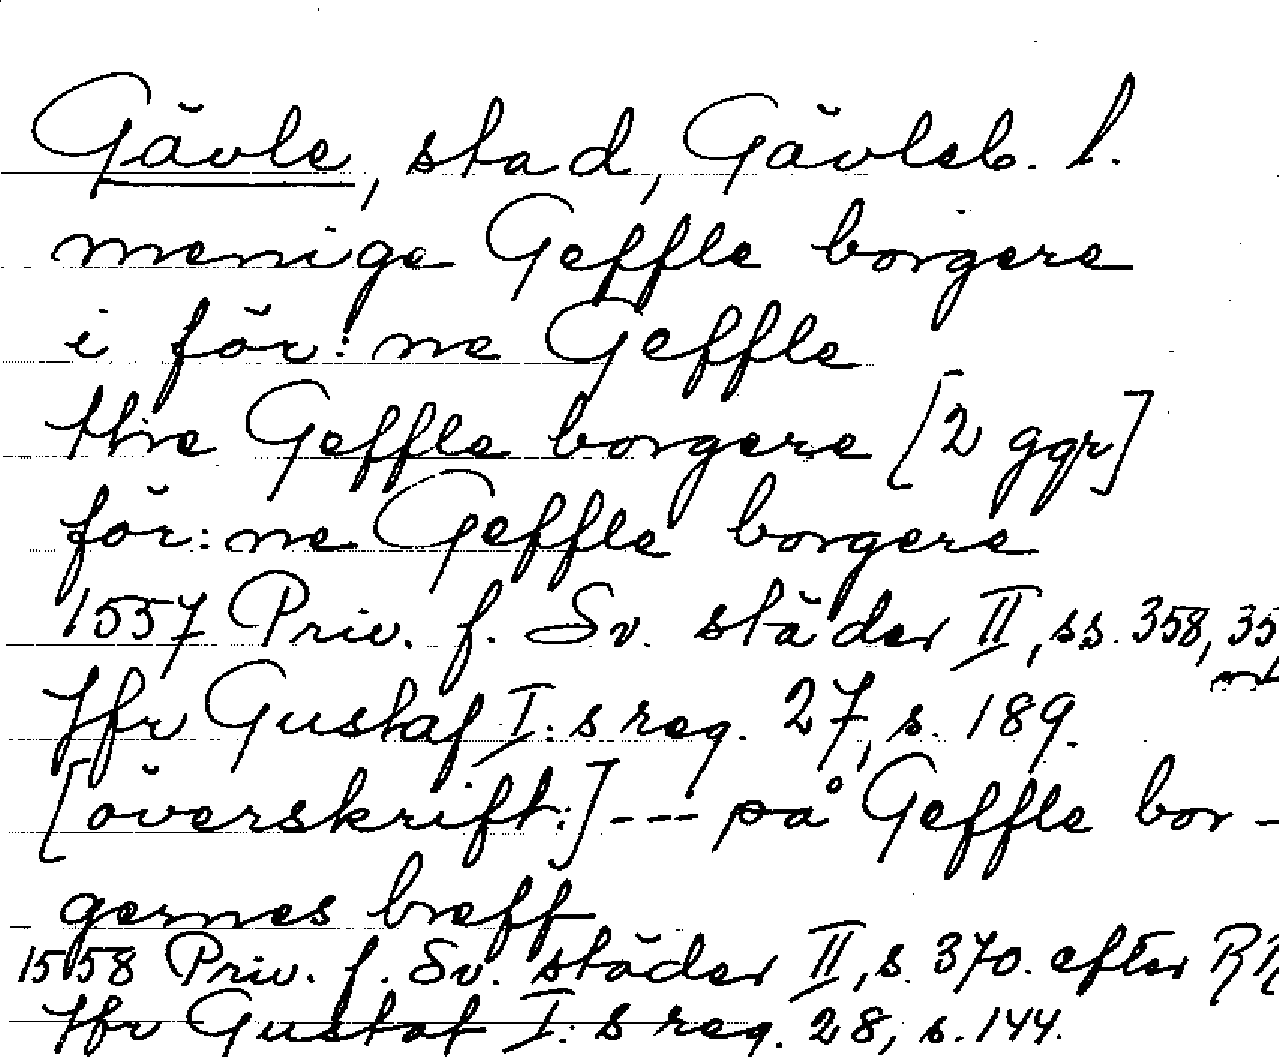 Gävle, stad, Gävleb. l.
menige Geffle borgere
i för:ne Geffle
thre Geffle borgere [2 ggr]
för:ne Geffle borgere
1557 Priv. f. Sv. städer II, ss. 358, 35
Jfr Gustaf I:s reg. 27, s. 189.
[överskrift:] --- på Geffle bor-
gernes breff
1558 Priv. f. Sv. städer II, s. 370. efter RR
Jfr Gustaf I:s reg. 28, s. 144.